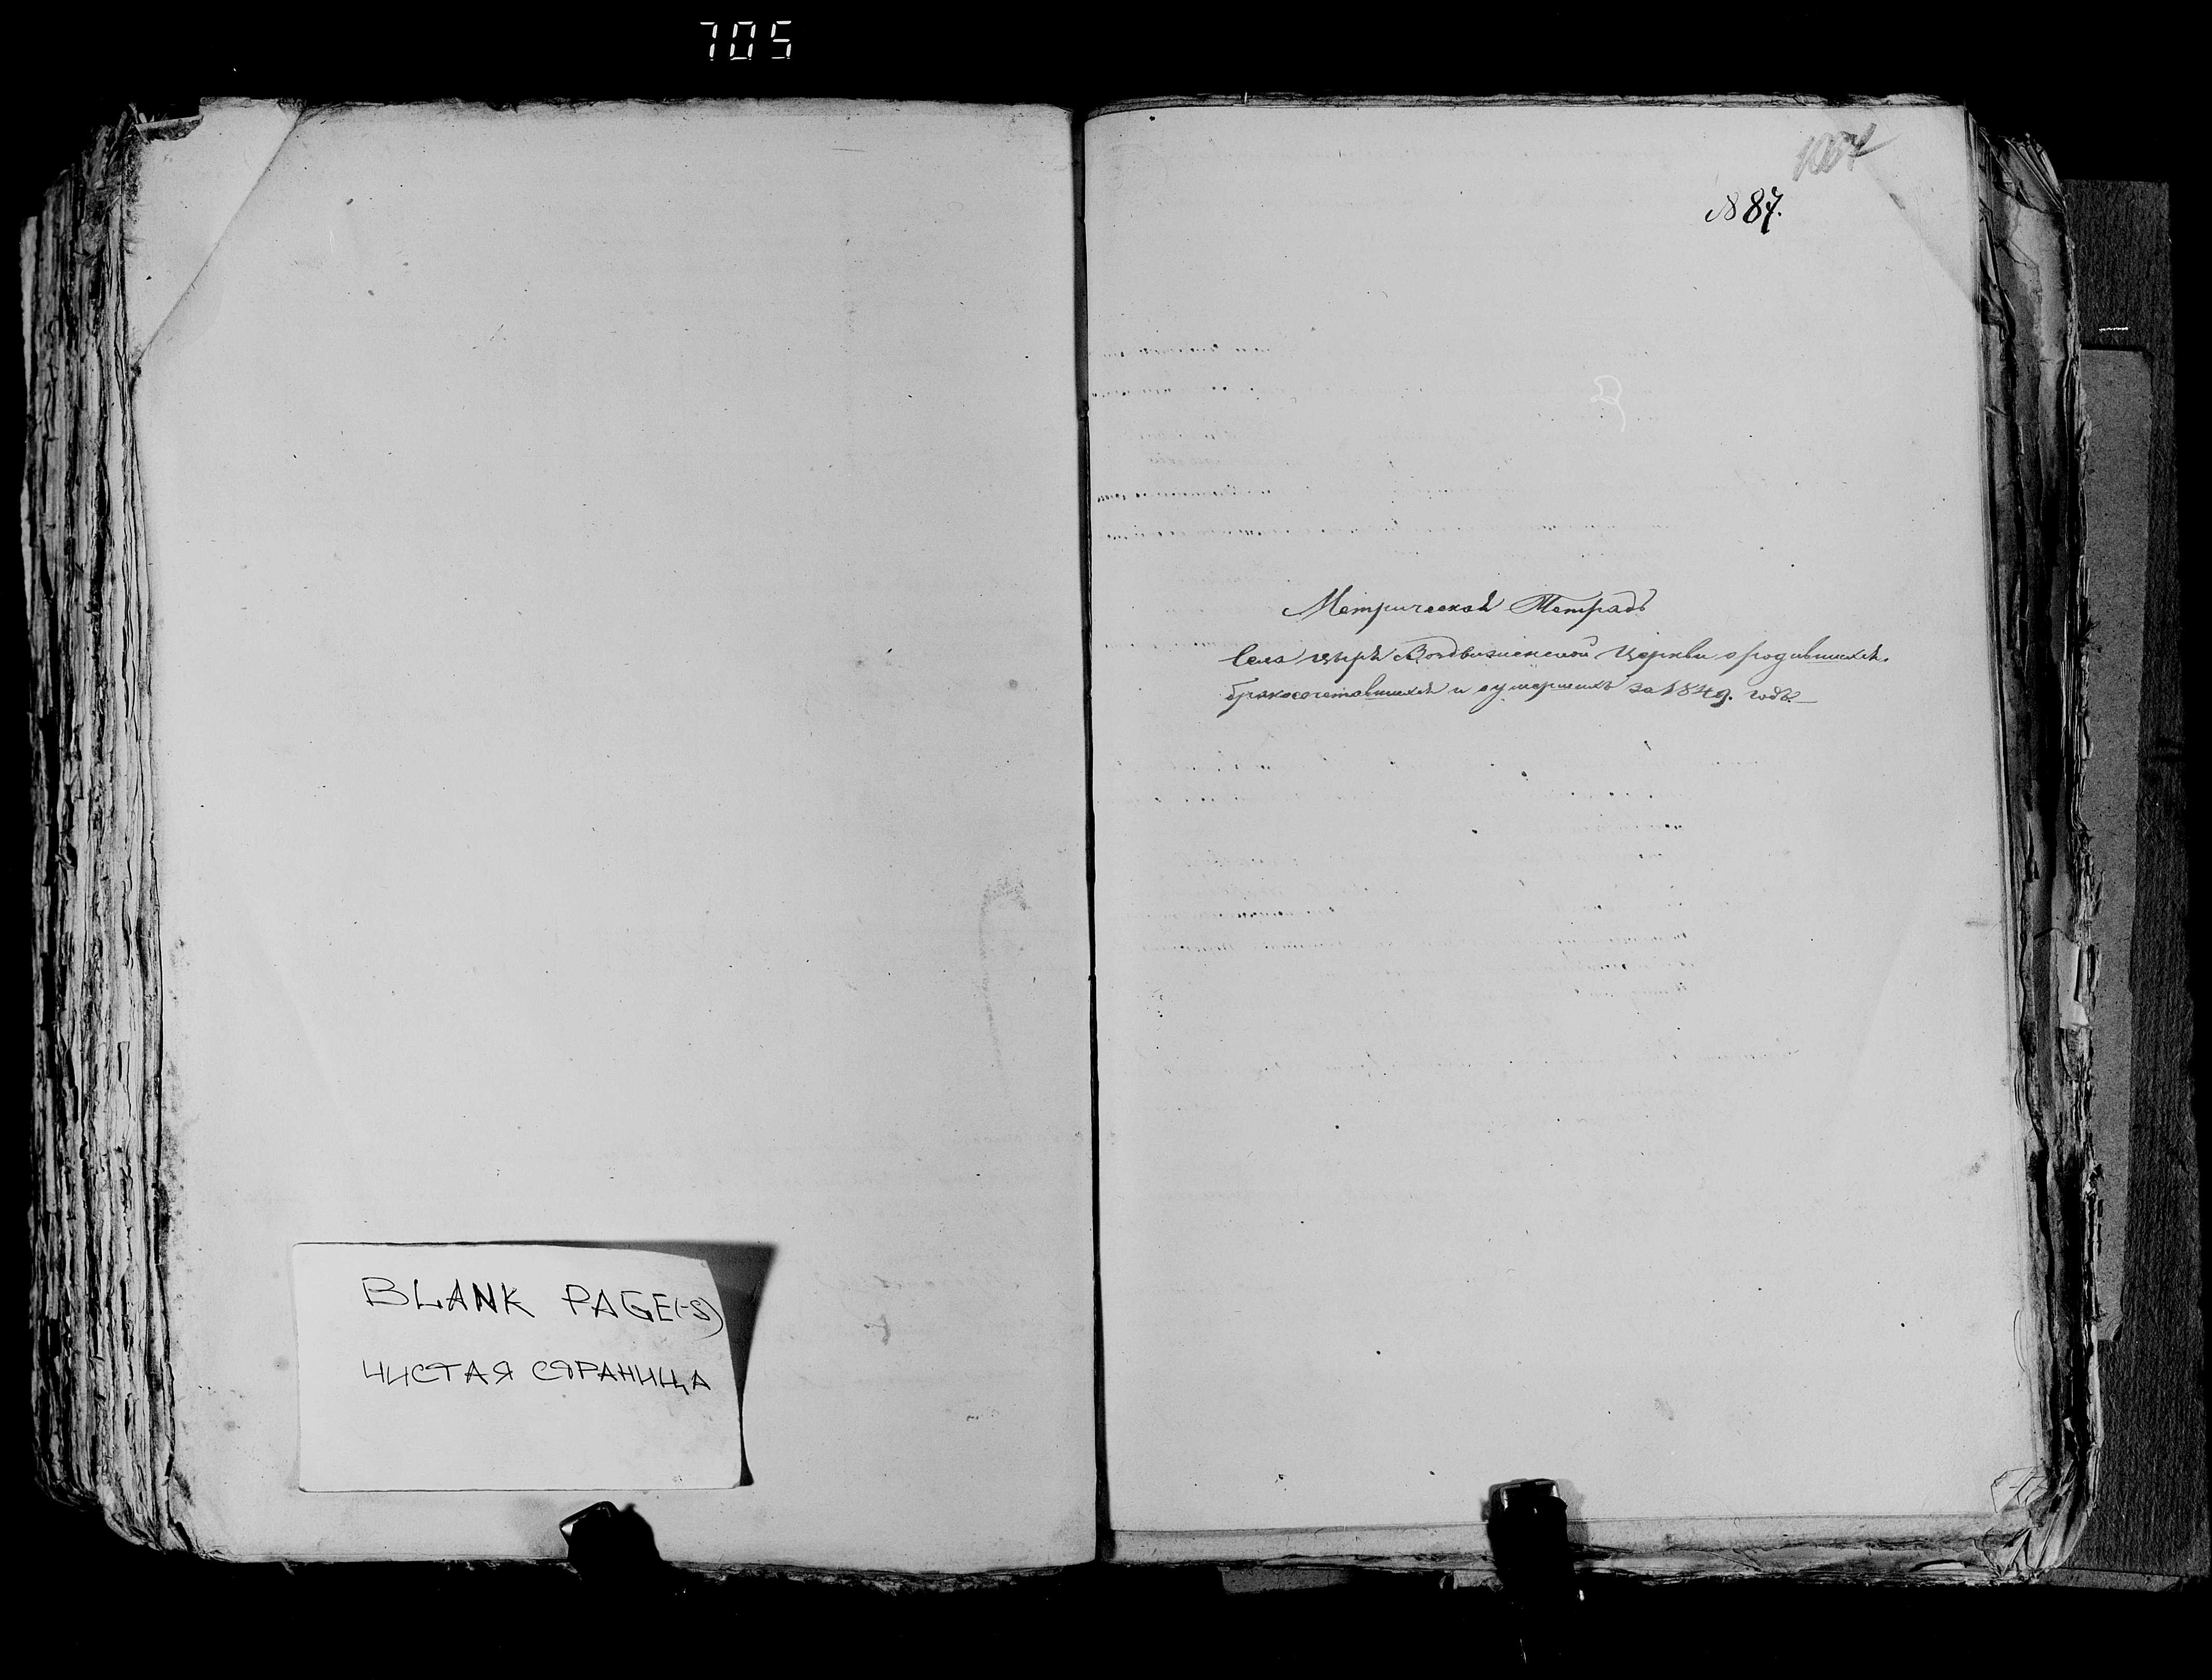 705
BLANK PAGE(-S)
ЧИСТАЯ СТРАНИЦА
№ 87.
Метрическая Тетрадь
Села Воздвиженской Церкви о родившихся.
бракосочетавшихся и о умершихъ за 1849. годъ.